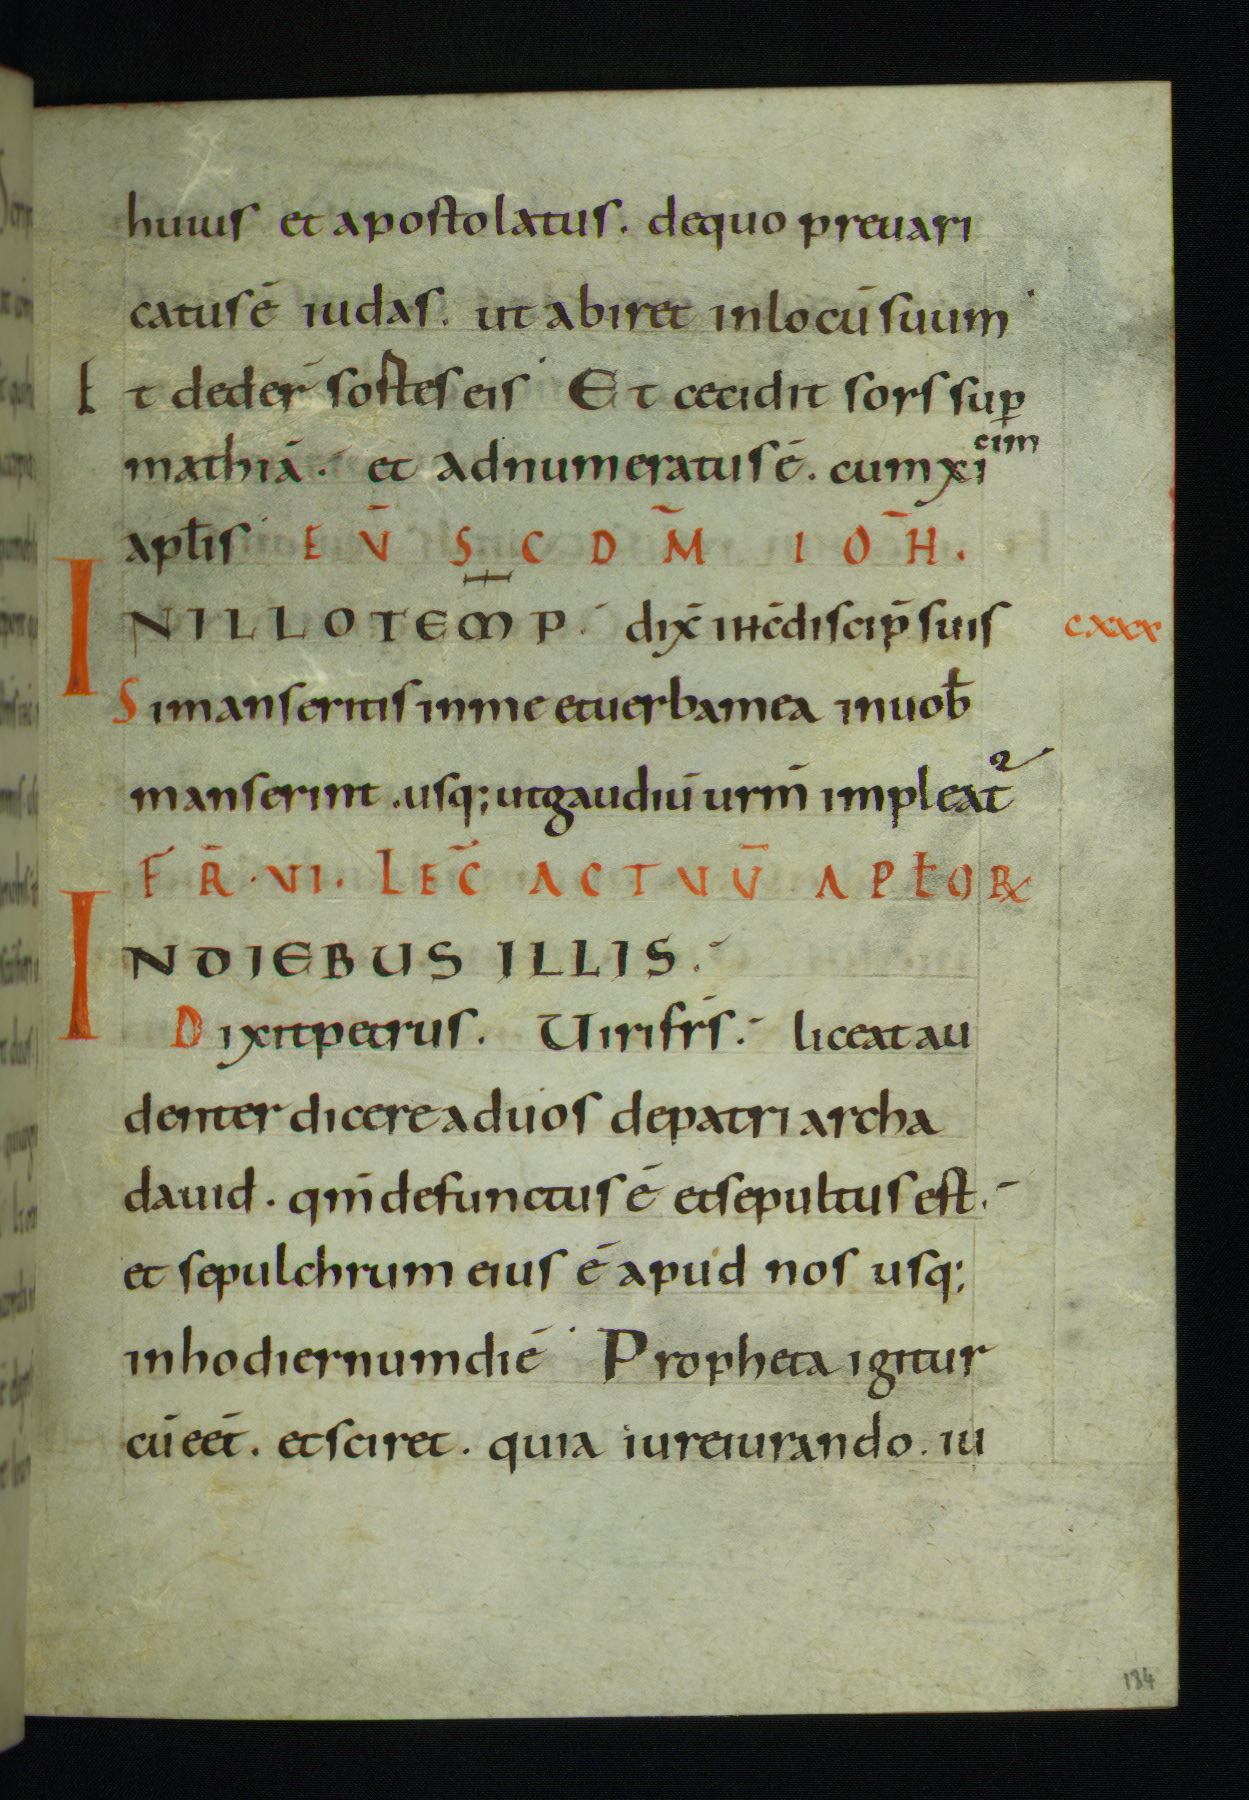 huius et apostolatus. dequo preuari
catus ē iudas. ut abiret inlocū suum
Et dederᷓ sostes eis Et cecidit sors suꝑ
mathiā. et adnumeratus ē. cum xicim
aplis EṼ SCDM̃ IOH̃.
INILLOTEMP. dix̄ ihc̄ discip̄ suis cxxx
Simanseritis inme etuerbamea inuob̄
manserint. usq; utgaudiū urm̄ impleat᷑
FR̃. VI. LEC̃ ACTUŪ APŁOꝝ
INDIEBUS ILLIS.
Dixitpetrus. Uirifrs̄. liceat au
denter dicere aduos depatriarcha
dauid. qm̄ defunctus ē etsepultus est.
et sepulchrum eius ē apud nos usq;
inhodiernumdiē Propheta igitur
cū eēt. etsciret. quia iureiurando. iu
184